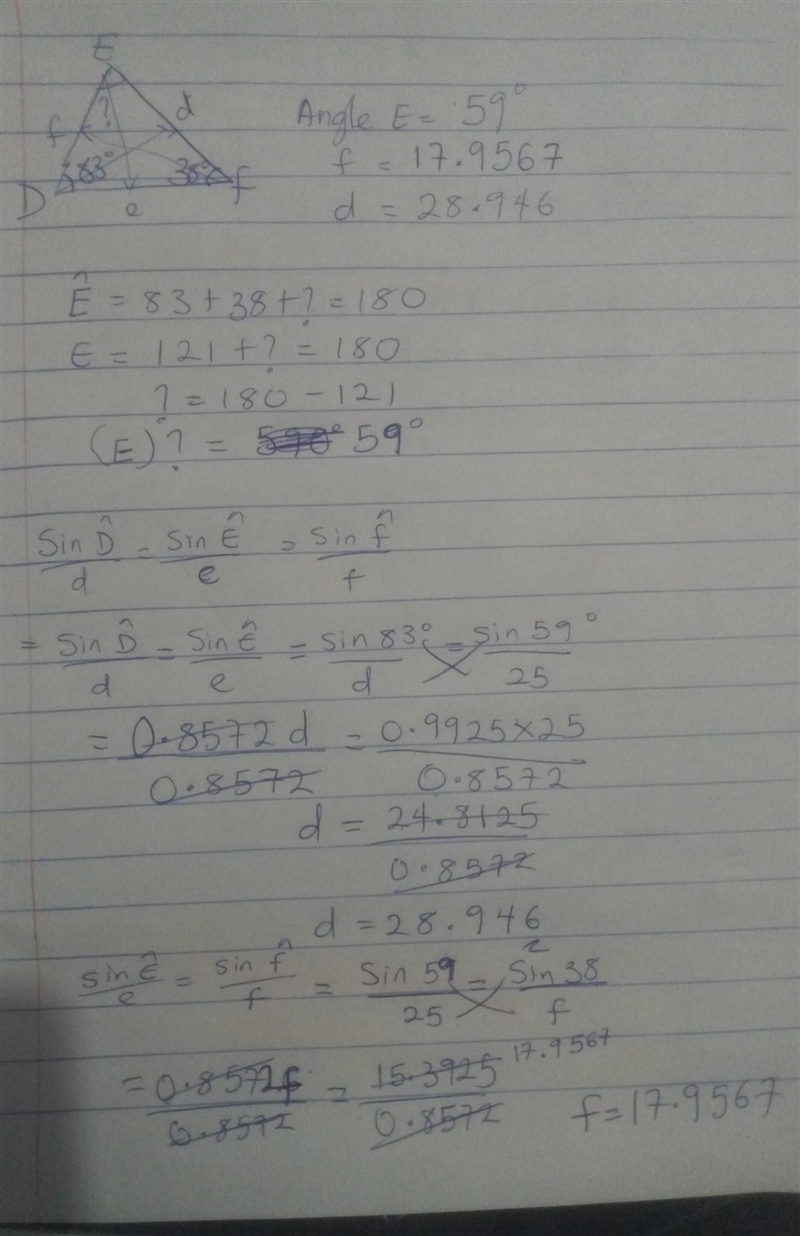 E
? d Angle E = 59°
f f = 17.9567
83° 38° d = 28.946
D e f
Ê = 83 + 38 + ? = 180
E = 121 + ? = 180
? = 180 - 121
(E) ? = 59°
Sin D̂/d = Sin Ê/e = Sin f̂/f
= Sin D̂/d = Sin Ê/e = Sin 83°/d = Sin 59°/25
= 0.8572 d/0.8572 = 0.9925×25/0.8572
d = 24.8125/0.8572
d = 28.946
sin Ê/e = sin f̂/f = Sin 59/25 = Sin 38/f
= 0.8572f/0.8572 = 15.3925/0.8572 17.9567 f = 17.9567